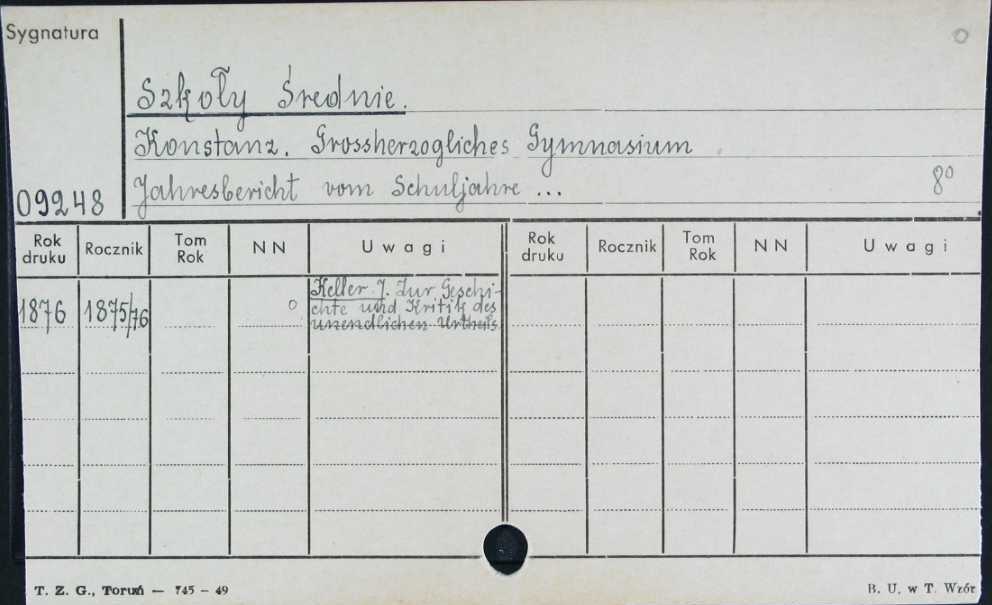 Sygnatura
Szkoły Średnie.
Konstanz. Grossherzogliches Gymnasium
Jahresbericht vom Schuljahre ... 8⁰
09248
Rok druku Rocznik Tom Rok NN Uwagi Rok druku Rocznik Tom Rok NN Uwagi
1876 1875/76 0 Keller J. Zur Geschi-
chte und Kritik des
unendlichen Urtheils
T. Z. G., Toruń — 745 – 49 B. U. w T. Wzór